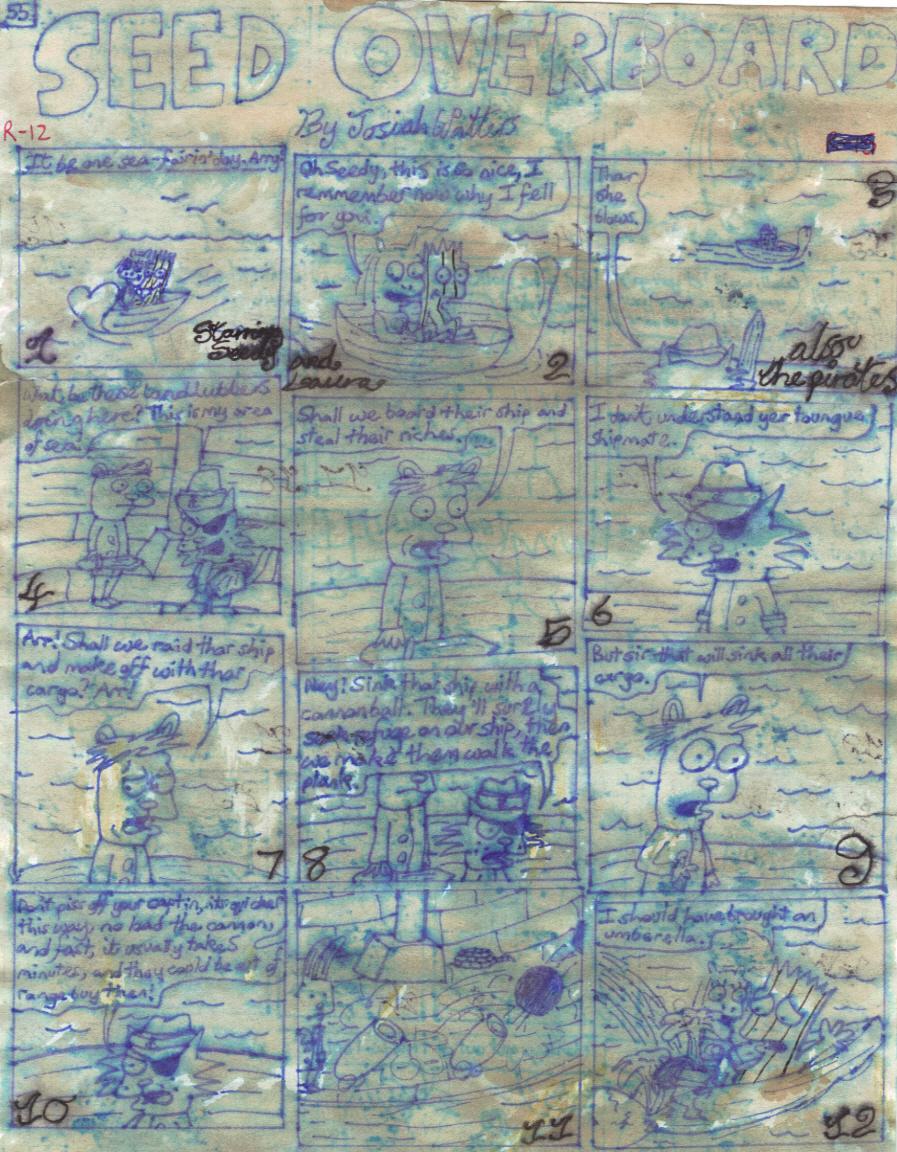 55
SEED OVERBOARD
R-12
By Josiah
It be one sea-fairin' day, Arry!
1
Starring
Seedy
Oh Seedy, this is so nice, I
remmember now why I fell
for you.
and
Laura
2
Thar
she
blows.
3
also
the pirates
What be these landlubbers
doing here? This is my area
of sea!
4
Shall we board their ship and
steal their riches.
5
I don't understand yer toungue,
shipmate.
6
Arr! Shall we raid thar ship
and make off with thar
cargo? Arr!
7
Nay! Sink thar ship with a
cannonball. They'll surely
seek refuge on our ship, then
we make them walk the
plank.
8
But sir that will sink all their
cargo.
9
Don't piss off your captin, its quicker
this way, no bad the cannon,
and fast, it usually takes
minutes, and they could be out of
range buy then!
10
11
I should have brought an
umberella.
12